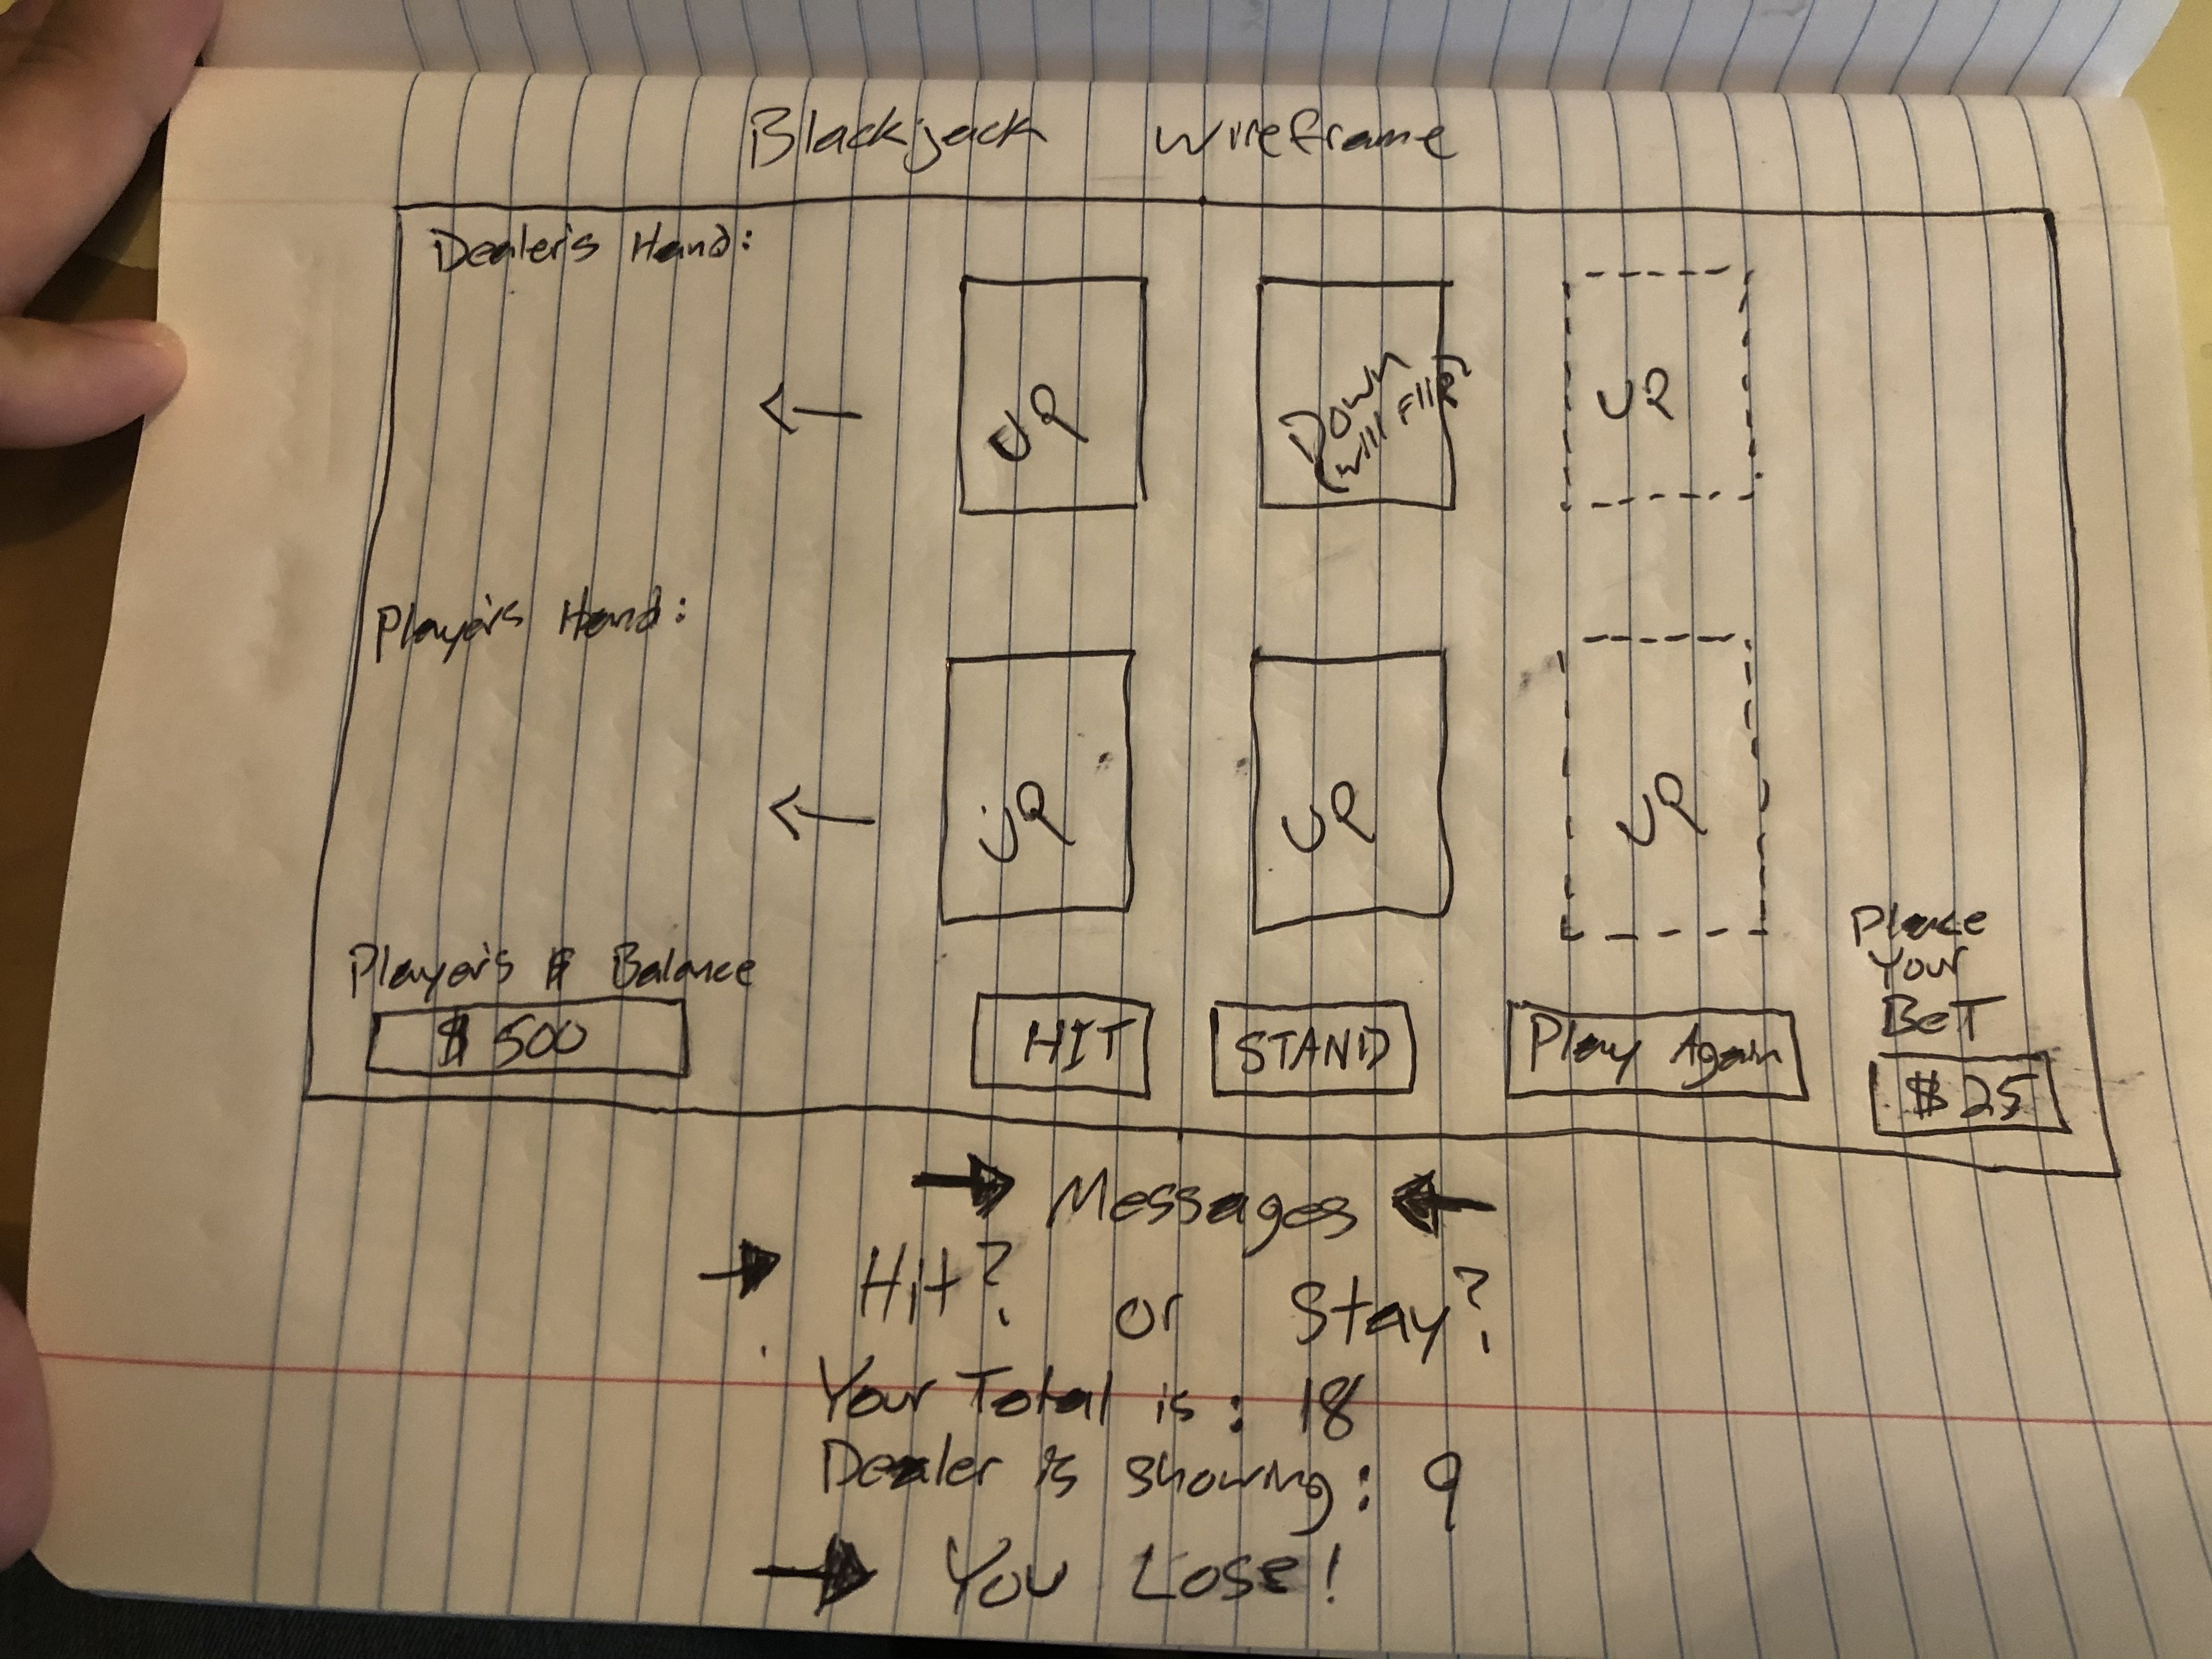 Blackjack Wireframe
Dealer's Hand:
UP
Down
(will Flip)
UP
Player's Hand:
UP
UP
UP
Player's $ Balance
$ 500
HIT
STAND
Play Again
Place
Your
BeT
$ 25
Messages
Hit? or Stay?
Your Total is: 18
Dealer is showing: 9
You Lose!